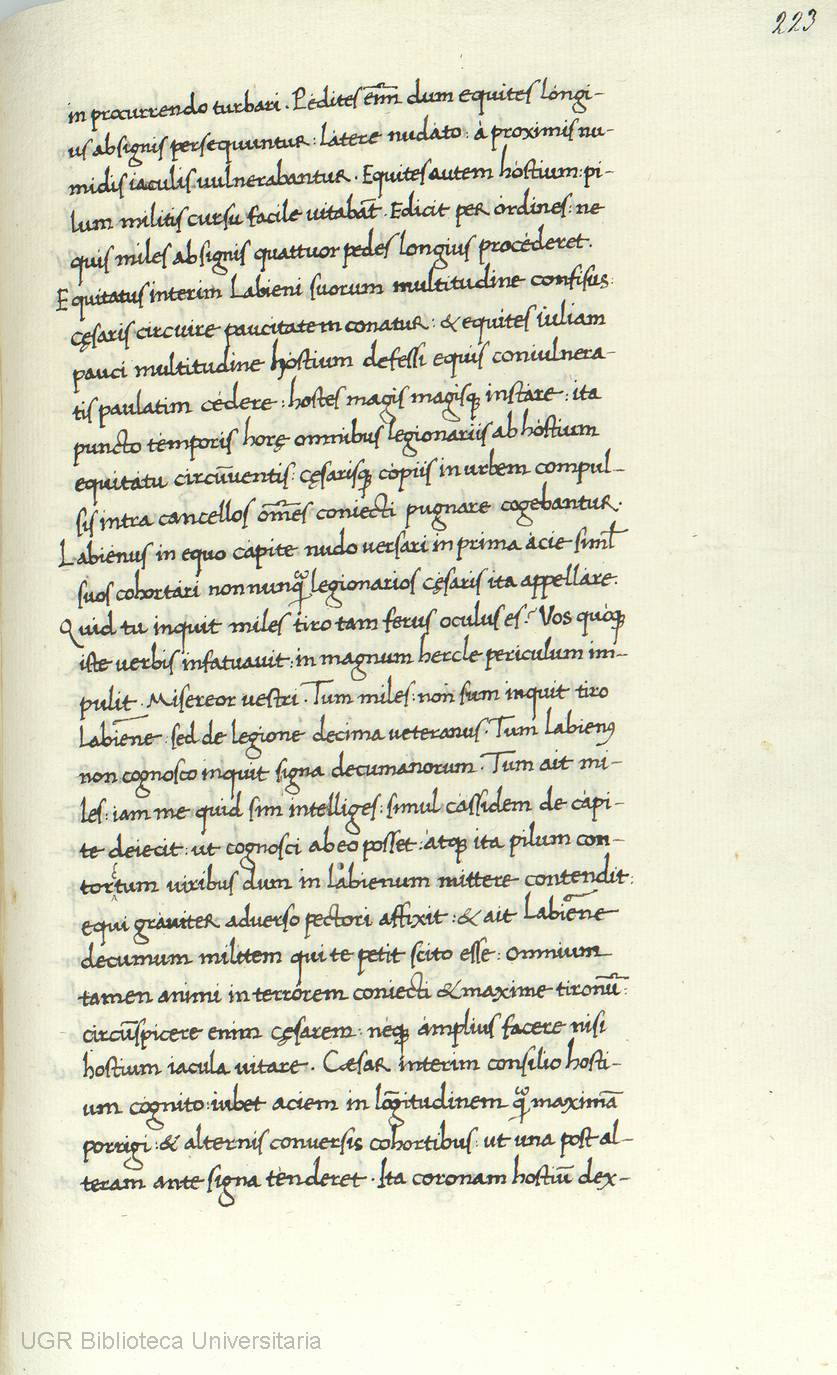 223
in procurrendo turbari. Pedites em̄ dum equites longi-
us ab signis persequuntur: latere nudato: a proximis nu-
midis iaculis vulnerabantur. Equites autem hostium: pi-
lum militis cursu facile vitabāt. Edicit per ordines: ne
quis miles ab signis quattuor pedes longius procederet.
Equitatus interim Labieni suorum multitudine confisus:
cęsaris circuire paucitatem conatur: & equites iuliam
pauci multitudine hostium defessi equis coniulnera-
tis paulatim cedere: hostes magis magisq; instare: ita
puncto temporis horę omnibus legionariis ab hostium
equitatu circūventis: cęsarisq; copiis in urbem compul-
sis intra cancellos om̄es coniecti pugnare cogebantur.
Labienus in equo capite nudo versari in prima acie siml̄
suos cohortari non nunq̄ legionarios cęsaris ita appellare.
Quid tu inquit miles tiro tam ferus oculus es? Vos quoq;
iste verbis infatuavit: in magnum hercle periculum im-
pulit. Misereor vestri. Tum miles: non sum inquit tiro
Labiene: sed de legione decima veteranus. Tum labienꝰ
non cognosco inquit signa decumanorum. Tum ait mi-
les: iam me quid sim intelliges: simul cassidem de capi-
te deiecit: ut cognosci ab eo posset: atq; ita pilum con-
tortum viribus dum in labienum mittere contendit:
equi graviter adverso pectori affixit: & ait Labiene
decumum militem qui te petit scito esse: omnium
tamen animi in terrorem coniecti & maxime tironū:
circūspicere enim cęsarem: neq; amplius facere nisi
hostium iacula vitare. Cæsar interim consilio hosti-
um cognito: iubet aciem in lōgitudinem q̄ maximā
porrigi: & alternis conversis cohortibus: ut una post al-
teram ante signa tenderet. Ita coronam hostiū dex-
UGR Biblioteca Universitaria